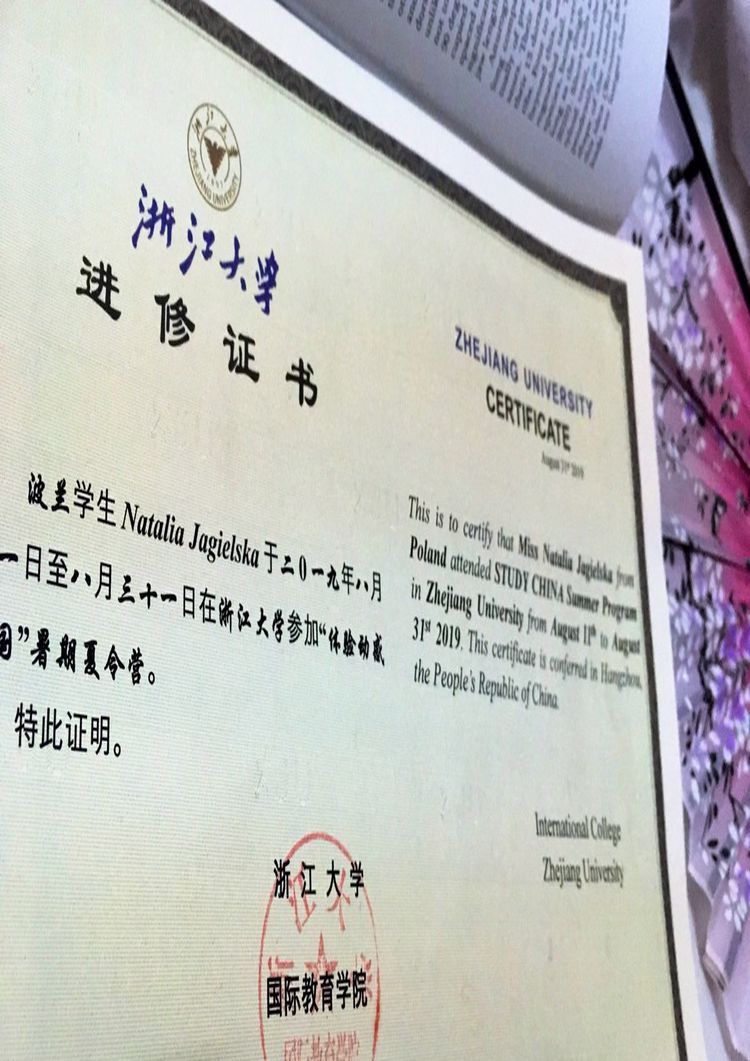 ZHEJIANG UNIVERSITY
浙江大学
进修证书
波兰学生 Natalia Jagielska 于二0一九年八月
一日至八月三十一日在浙江大学参加“体验动感
国”暑期夏令营。
特此证明。
浙江大学
国际教育学院
国际教育学院
ZHEJIANG UNIVERSITY
CERTIFICATE
August 31st 2019
This is to certify that Miss Natalia Jagielska from
Poland attended STUDY CHINA Summer Program
in Zhejiang University from August 11th to August
31st 2019. This certificate is conferred in Hangzhou,
the People's Republic of China.
International College
Zhejiang University